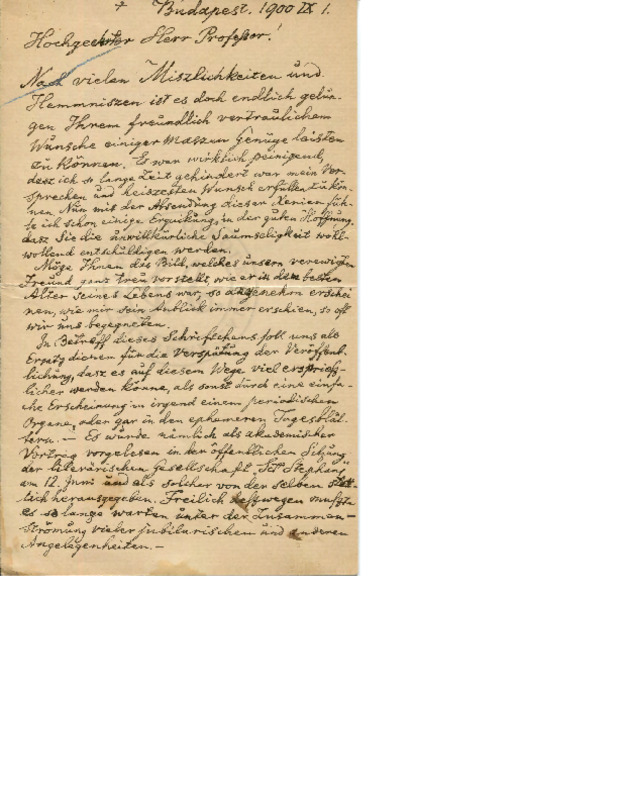 + Budapest. 1900 IX 1.
Hochgeehrter Herr Professor!
Nach vielen Miszlichkeiten und
Hemmniszen ist es doch endlich gelun-
gen Ihrem freundlich vertraulichem
Wunsche einiger maszen Genüge leisten
zu können. Es war wirklich peinigend,
dasz ich so lange Zeit gehindert war mein Ver-
sprechen und heiszesten Wunsch erfüllen zu kön-
nen. Nun mit der Absendung dieser Xenien füh-
le ich schon einige Erquikung, in der guten Hoffnung,
dasz Sie die unwillkürliche Saumseligkeit wohl-
wollend entschuldigen werden.
Möge Ihnen das Bild, welches unsern verewigten
Freund ganz treu vorstellt, wie er in dem besten
Alter seines Lebens war, so angenehm erschei-
nen, wie mir sein Anblick immer erschien, so oft
wir uns begegneten.
In Betreff dieses Schriftchens soll uns als
Ersatz dienen für die Verspätung der Veröffent-
lichung, dasz es auf diesem Wege viel erspriesz-
licher werden könne, als sonst durch eine einfa-
che Erscheinung in irgend einem periodischen
Organe, oder gar in den ephemeren Tagesblät-
tern. — Es wurde nämlich als akademischer
Vortrag vorgelesen in der öffentlichen Sitzung
der literärischen Gesellschaft "Sct Stephan"
am 12. Juni und als solcher von der selben
lich herausgegeben. Freilich deszwegen muszte
es so lange warten unter der Zusammen-
strömung vieler jubilarischen und anderen
Angelegenheiten. —